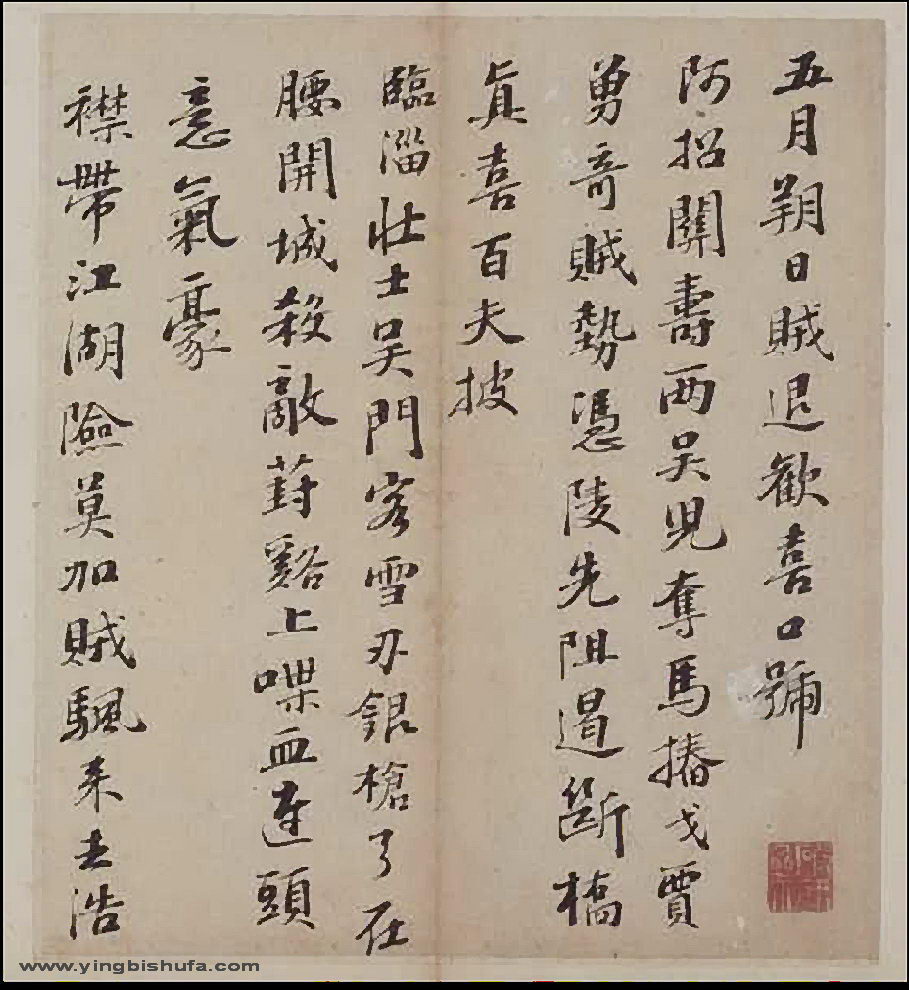 五月朔日賊退歡喜口號
阿招關壽兩吳兒奪馬摏戈賈
勇奇賊勢憑陵先阻遏斷橋
真喜百夫披
臨淄壯士吳門客雪刃銀槍了在
腰開城殺敵葑谿上喋血連頭
意氣豪
襟帶江湖險莫加賊颿来去浩
www.yingbishufa.com